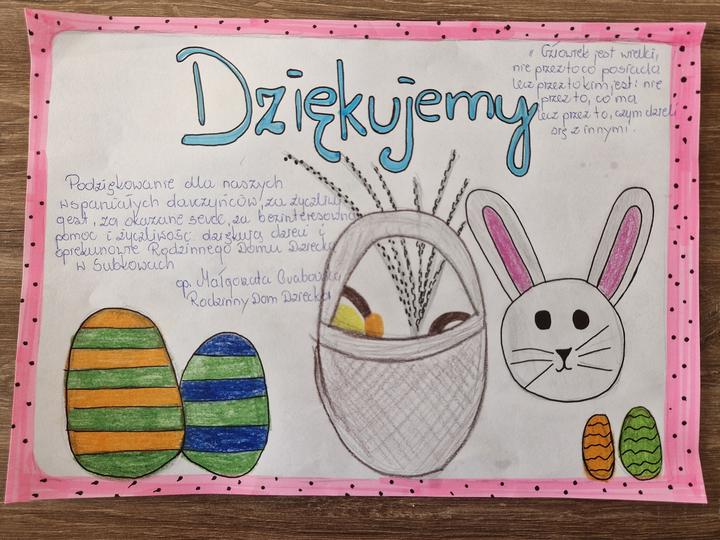 Dziękujemy
„Człowiek jest wielki,
nie przez to co posiada
lecz przez to kim jest; nie
przez to, co ma
lecz przez to, czym dzieli
się z innymi.
Podziękowanie dla naszych
wspaniałych darczyńców, za życzliwy
gest, za okazane serce, za bezinteresowną
pomoc i życzliwość dziękują dzieci i
opiekunowie Rodzinnego Domu Dziecka
w Subkowach
op. Małgorzata
Rodzinny Dom Dziecka